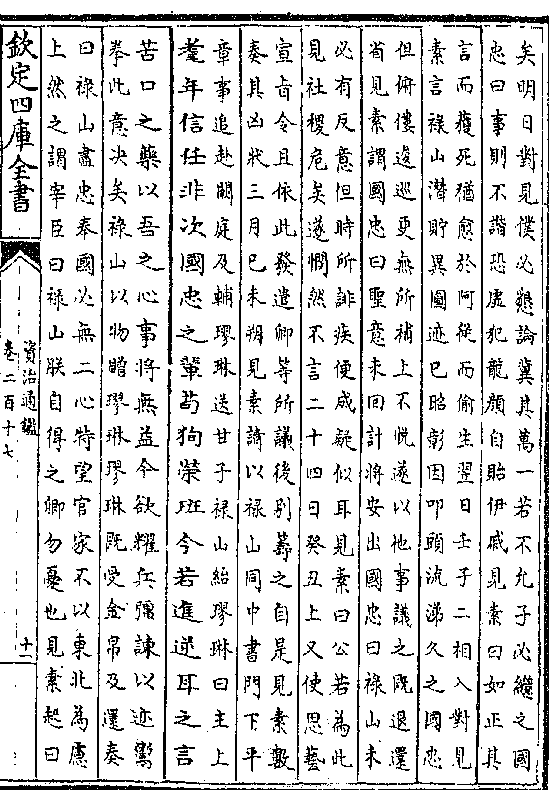 矣明日對見僕必懇論冀其萬一若不允子必繼之國
忠曰事則不諧恐虛犯龍顔自貽伊慼見素曰如正其
言而獲死猶愈於阿從而偷生翌日壬子二相入對見
素言祿山潛貯異圖迹已昭彰因叩頭流涕久之國忠
但俯僂逡巡更無所補上不悦遂以他事議之既退還
省見素謂國忠曰聖意未回計將安出國忠曰祿山未
必有反意但時所誹疾便成疑似耳見素曰公若為此
見社稷危矣遂憫然不言二十四日癸丑上又使思藝
宣㫖令且依此發遣卿等所議後别籌之自是見素數
奏其凶狀三月已未朔見素請以祿山同中書門下平
章事追赴闕庭及輔璆琳送甘子祿山紿璆琳曰主上
耄年信任非次國忠之輩苟狥榮班今若進逆耳之言
苦口之藥以吾之心事將無益今欲耀兵彊諫以迹鬻
拳此意决矣祿山以物贈璆琳璆琳既受金帛及還奏
曰祿山盡忠奉國必無二心特望官家不以東北為慮
上然之謂宰臣曰祿山朕自得之卿勿憂也見素起曰
欽定四庫全書
資治通鑑
卷二百十七
十一